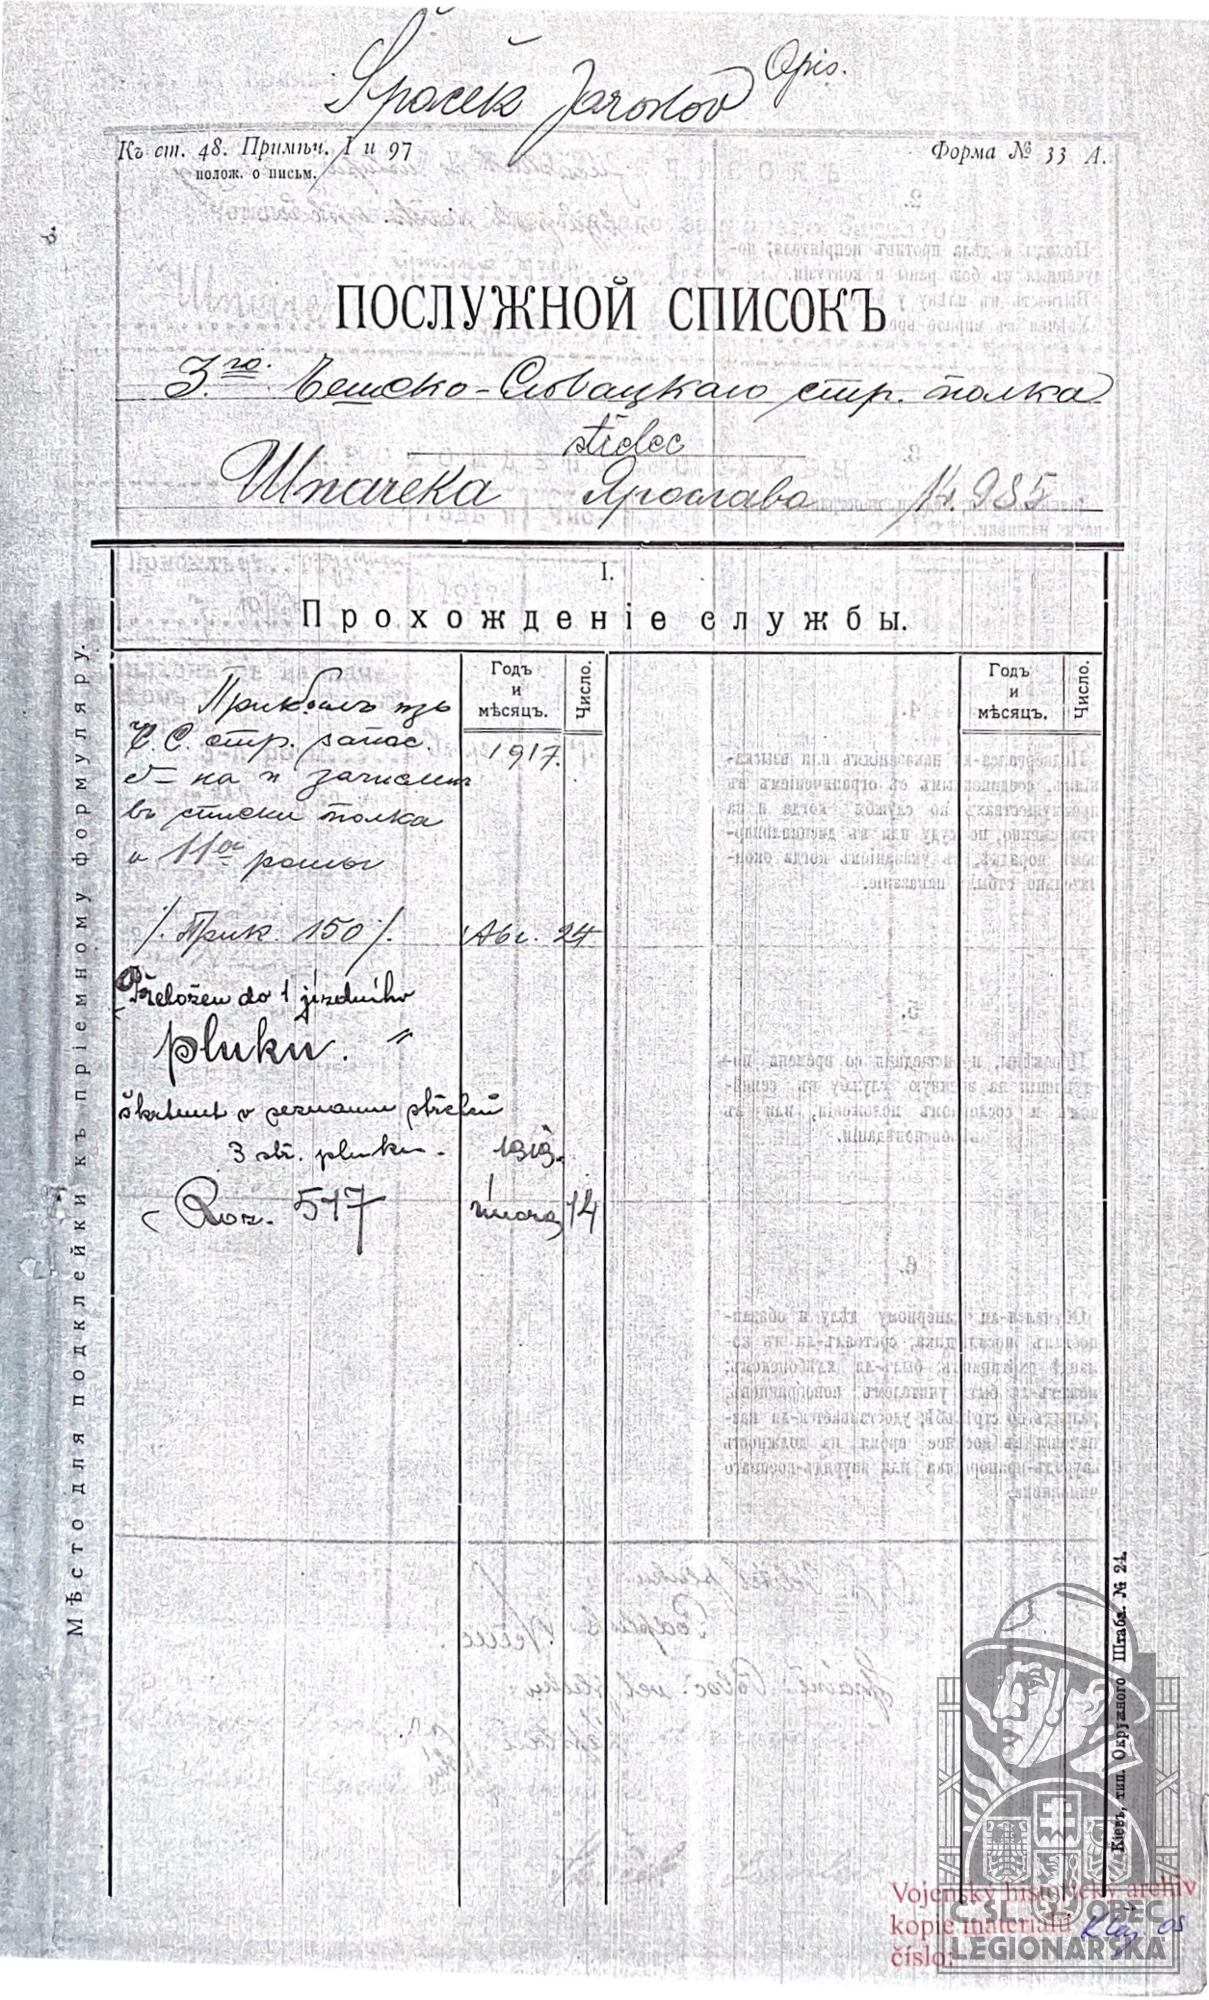 Špaček Jaroslav Opis.
Къ ст. 48. Примѣч. I и 97
полож. о письм.
Форма № 33 А.
ПОСЛУЖНОЙ СПИСОКЪ
3го. Чешско-Словацкаго стр. полка
střelec
Шпачека Ярослава № 985
I.
Прохожденіе службы.
Годъ и мѣсяцъ.
Число.
Годъ и мѣсяцъ.
Число.
Прибылъ изъ
Ч. С. стр. запас. 1917.
б-на и зачислен
въ списки полка
и 11ой роты
/. Прик. 150/. Авг. 24
Přeložen do 1 jízdního
pluku. "
škrtnut v seznamu střelců
3 stř. pluku. 1919.
(Roz. 517 února 14
Мѣсто для подклейки къ пріемному формуляру.
Кіевъ, тип. Окружного Штаба. № 24.
Vojenský historický archiv
kopie materiálu
číslo:
ČSL. OBEC
LEGIONÁŘSKÁ